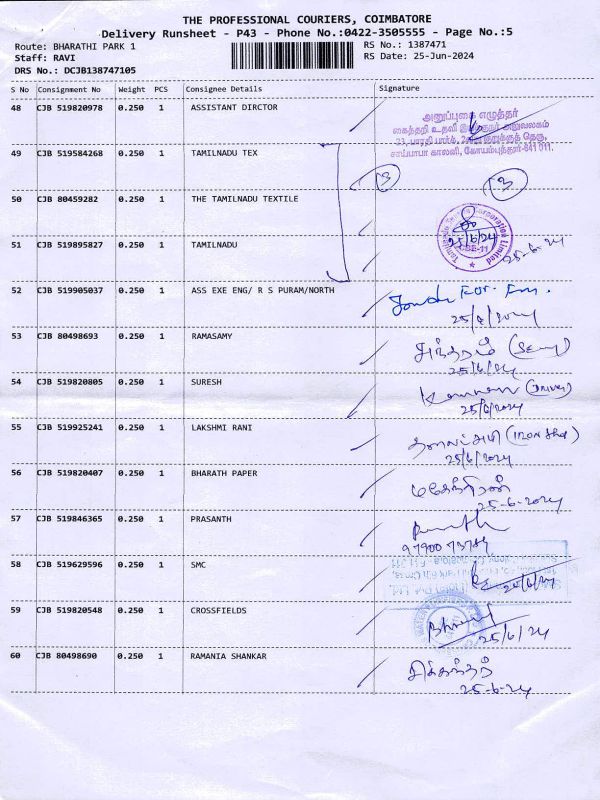 THE PROFESSIONAL COURIERS, COIMBATORE
Delivery Runsheet - P43 - Phone No.:0422-3505555 - Page No.:5
Route: BHARATHI PARK 1 RS No.: 1387471
Staff: RAVI RS Date: 25-Jun-2024
DRS No.: DCJB138747105
S No Consignment No Weight PCS Consignee Details Signature
48 CJB 519820978 0.250 1 ASSISTANT DIRCTOR
அனுப்புகை எழுத்தர்
கைத்தறி உதவி இயக்குநர் அலுவலகம்
23, பாரதி பார்க், 2வது குறுக்குத் தெரு,
சாய்பாபா காலனி, கோயம்புத்தூர்-641 011.
49 CJB 519584268 0.250 1 TAMILNADU TEX 3 3
50 CJB 80459282 0.250 1 THE TAMILNADU TEXTILE
25/6/24
51 CJB 519895827 0.250 1 TAMILNADU 25-6-24
52 CJB 519905037 0.250 1 ASS EXE ENG/ R S PURAM/NORTH
53 CJB 80498693 0.250 1 RAMASAMY சுந்தரம்
25/6/24
54 CJB 519820805 0.250 1 SURESH (Driver)
25/6/2024
55 CJB 519925241 0.250 1 LAKSHMI RANI
25/6/2024
56 CJB 519820407 0.250 1 BHARATH PAPER மகேந்திரன்
25-6-2024
57 CJB 519846365 0.250 1 PRASANTH
58 CJB 519629596 0.250 1 SMC
59 CJB 519820548 0.250 1 CROSSFIELDS
25/6/24
60 CJB 80498690 0.250 1 RAMANIA SHANKAR
25-6-24